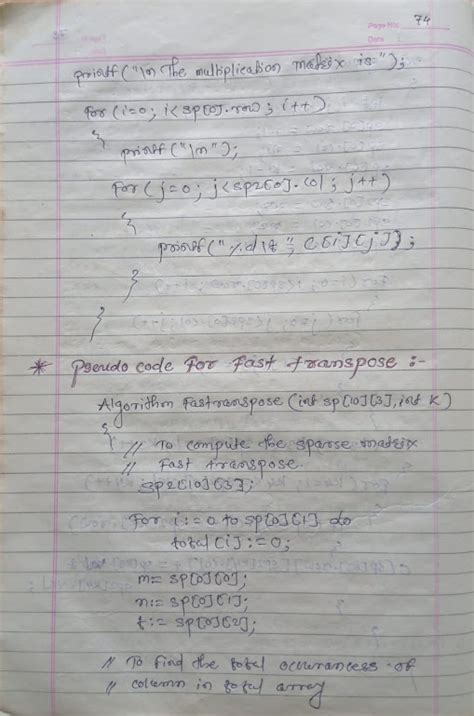 Page No: 74
Date
printf("\n The multiplication matrix is:");
for (i=0; i<sp[0].row; i++)
{
printf("\n");
for (j=0; j<sp2[0].col; j++)
{
printf("%d\t", C[i][j]);
}
}
* Pseudo code for fast transpose :-
Algorithm Fastranspose (int sp[10][3], int K)
{ // To compute the sparse matrix
// Fast transpose.
sp2[10][3];
For i:=0 to sp[0][1] do
total[i]:=0;
m= sp[0][0];
n:= sp[0][1];
t:= sp[0][2];
// To find the total occurancess of
// column in total array